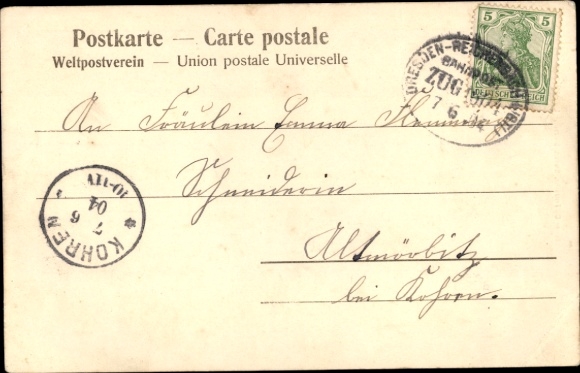 Postkarte — Carte postale
Weltpostverein — Union postale Universelle
5
DEUTSCHES REICH
DRESDEN-REICHENBACH (VGTL)
BAHNPOST
ZUG
7 6 04
An Fräulein Emma
Schneiderin
Altmörbitz
bei Kohren.
KOHREN
7 6
04
10-11V